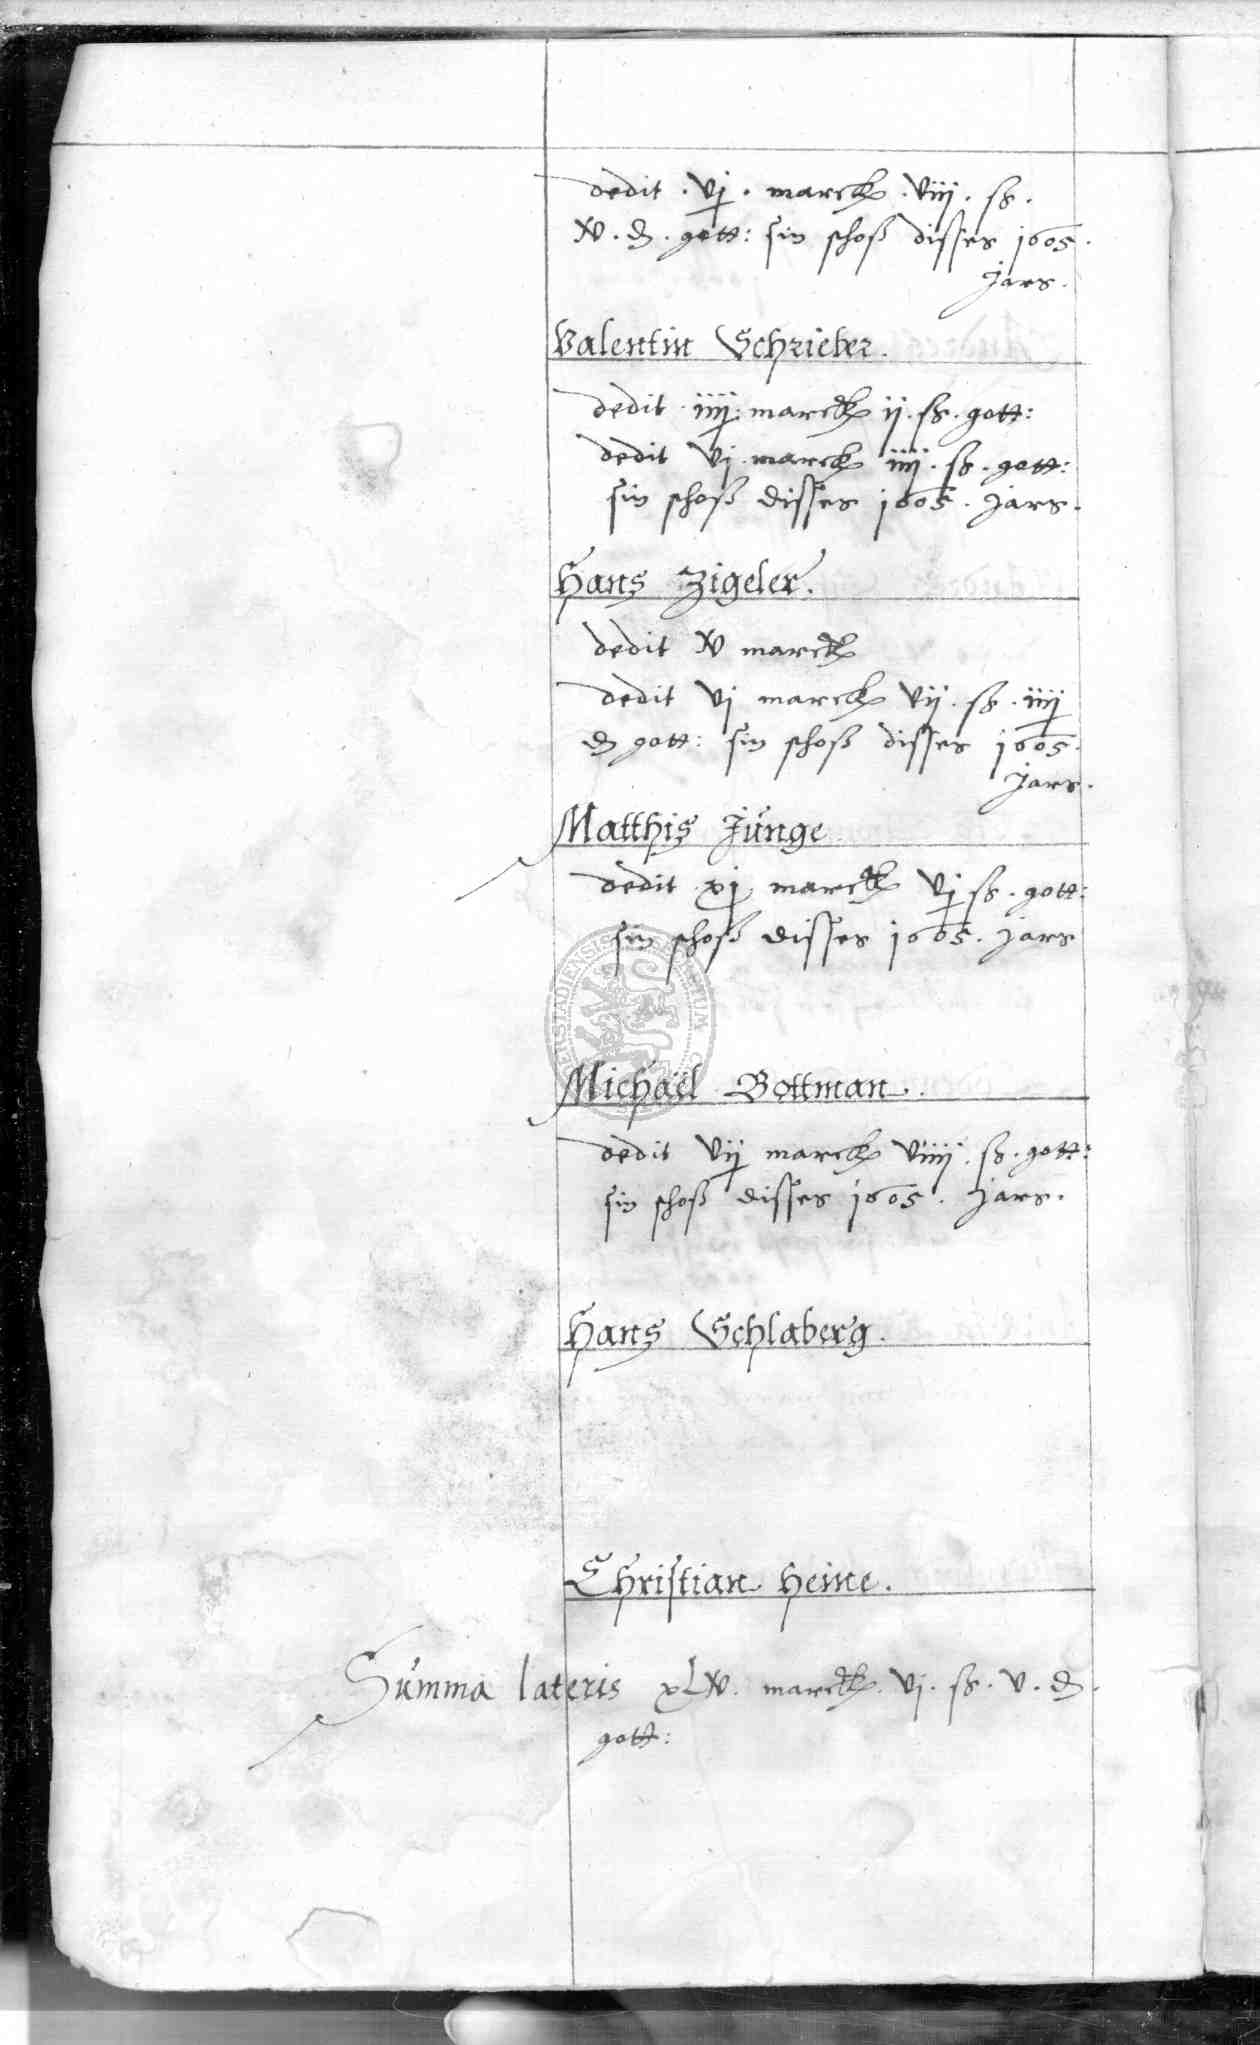 dedit . vj . marck . viij . ß .
v . d . gott: sin schoß disses 1605 .
Jars .
Valentin Schrieber .
dedit iiij marck ij . ß . gott:
dedit vj marck iiij . ß . gott:
sin schoß disses 1605 . Jars .
Hans Zigeler .
dedit v marck
dedit vj marck vij . ß . iiij
d gott: sin schoß disses 1605 .
Jars .
Matthis Junge
dedit xj marck vj ß . gott:
sin schoß disses 1605 . Jars
Michaël Bottman .
dedit vij marck viiij . ß . gott:
sin schoß disses 1605 . Jars .
Hans Schlaberg .
Christian Heine .
Summa lateris xLv . marck . vj . ß . v . d .
gott: